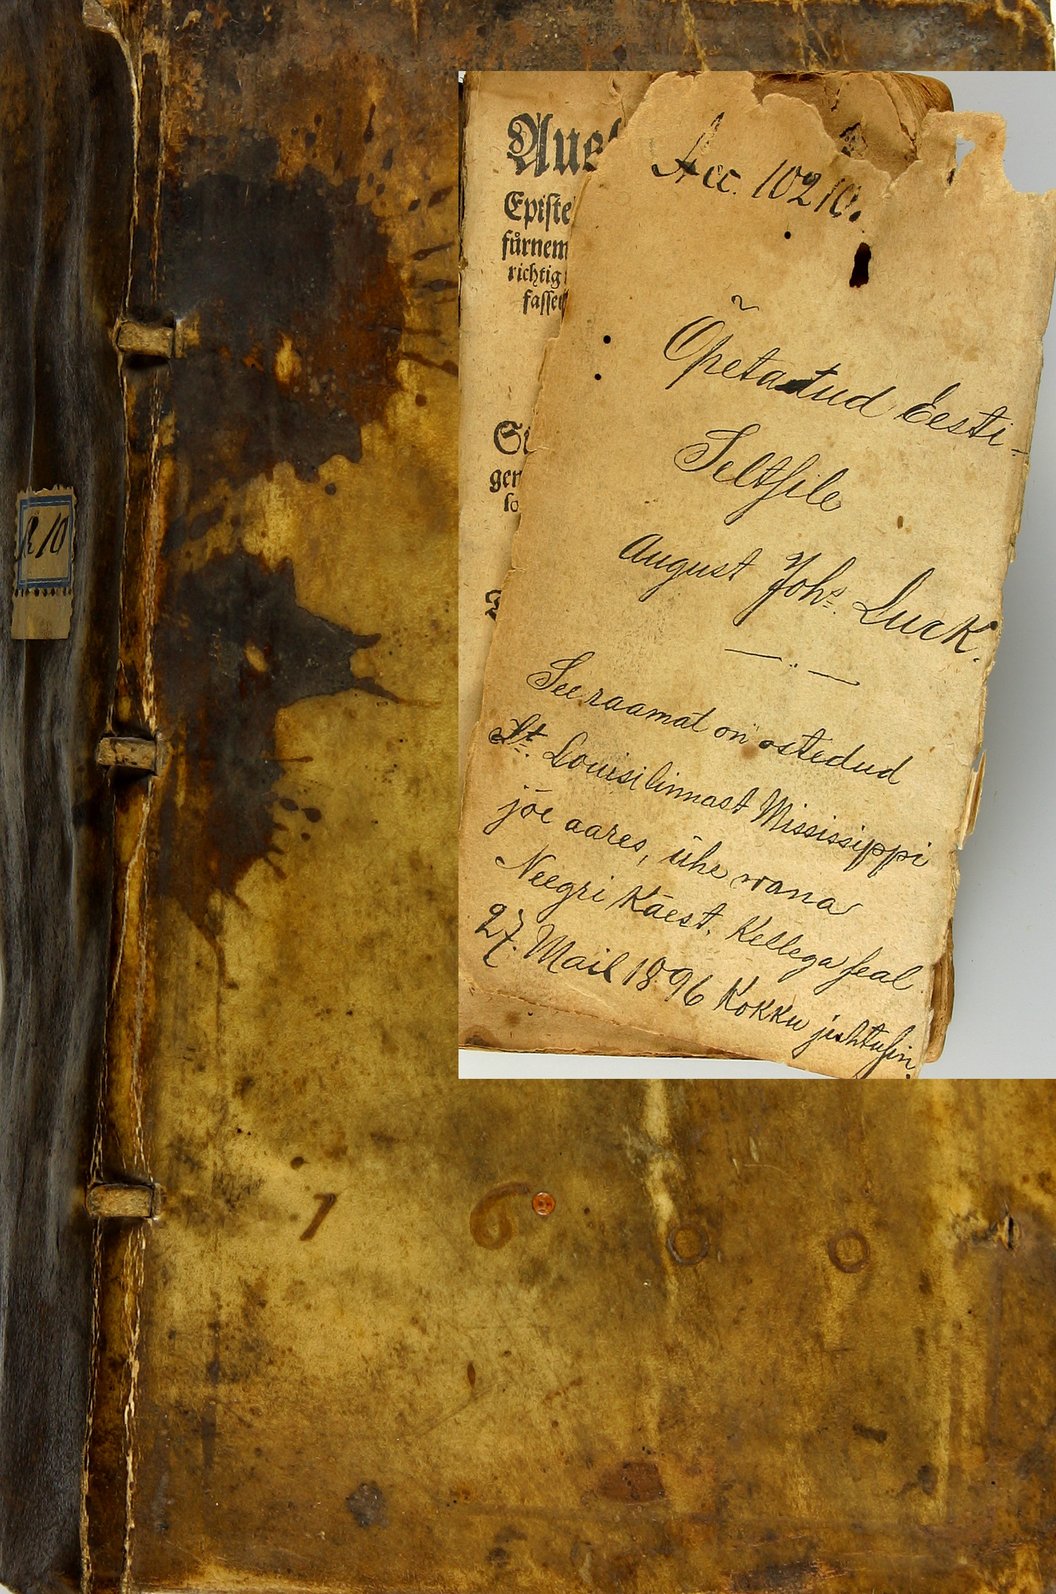 R 10
Aus
Epiſte
fürnem
richtig
faſſet
ger
lo
Acc. 10210.
Õpetatud Eesti-
Seltſile
August Johs. Luck.
See raamat on ostedud
St. Louisi linnast Mississippi
jõe aares, ühe wana
Neegri Käest, Kellega ſeal
27. Mail 1896 Kokku juhtuſin.
1 6 0 0